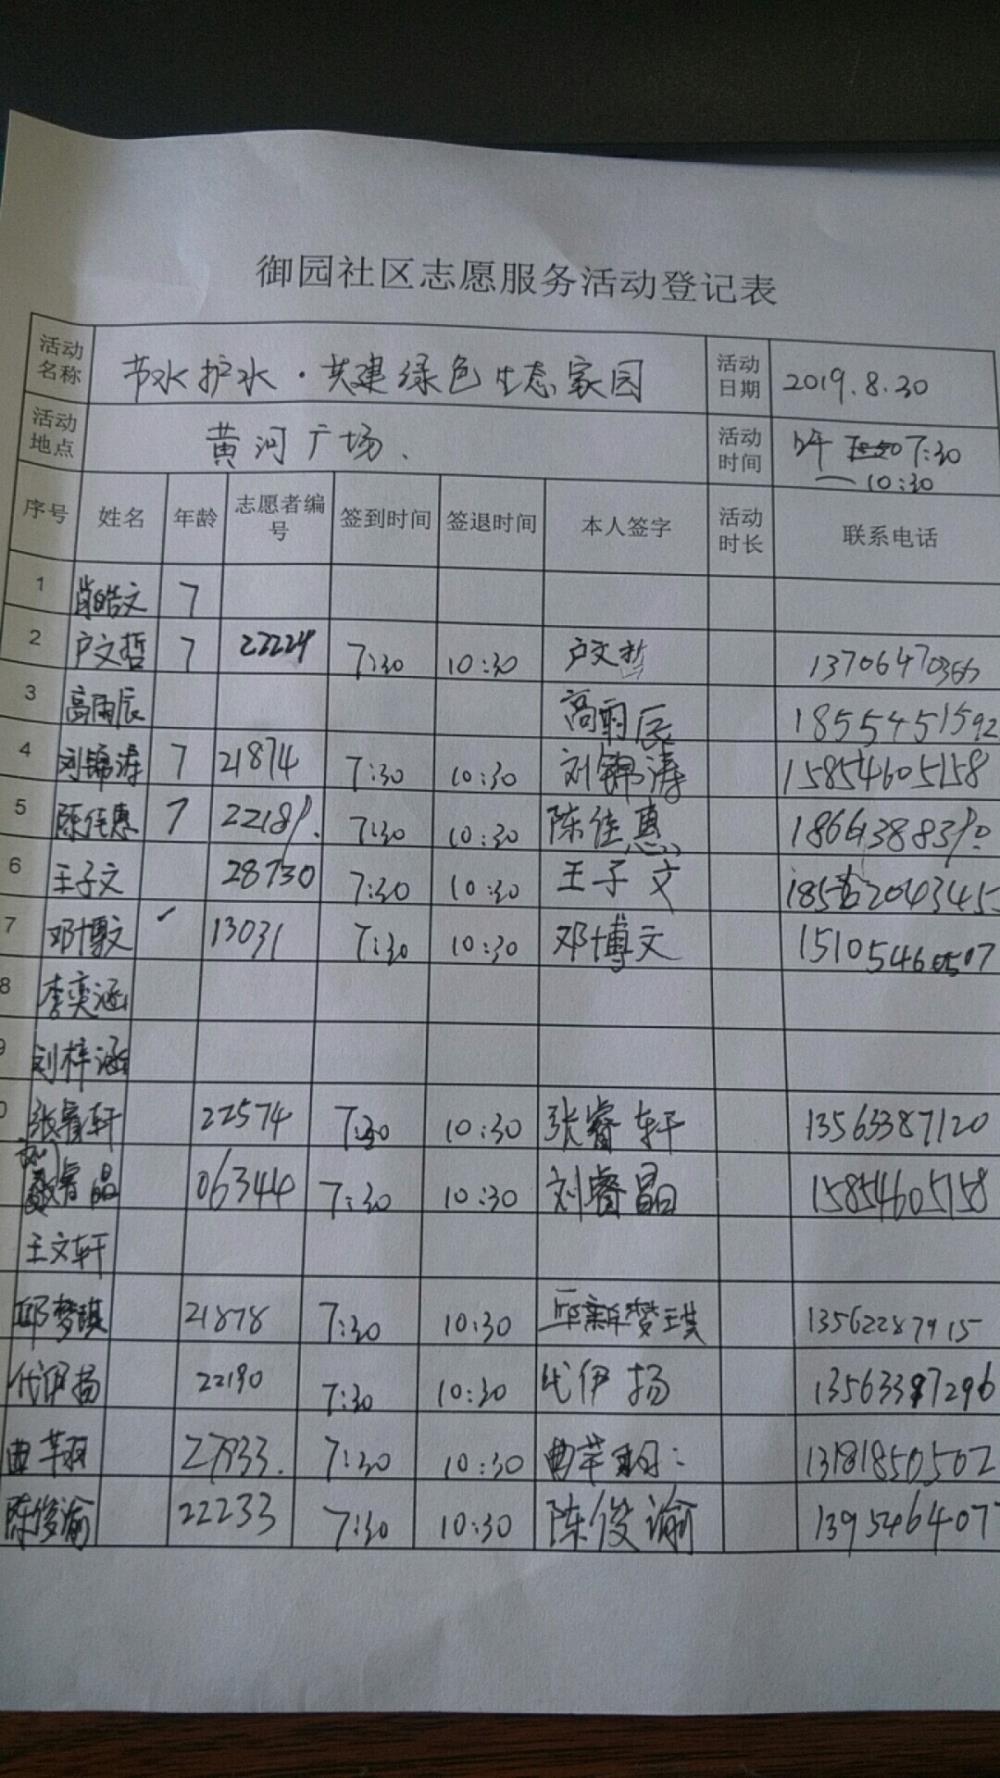 御园社区志愿服务活动登记表
活动名称 节水护水·共建绿色生态家园 活动日期 2019.8.30
活动地点 黄河广场、 活动时间 7:30
—10:30
序号 姓名 年龄 志愿者编号 签到时间 签退时间 本人签字 活动时长 联系电话
1 肖皓文 7
2 卢文哲 7 22224 7:30 10:30 卢文哲 13706470366
3 高雨辰 高雨辰 1855451592
4 刘锦涛 7 21874 7:30 10:30 刘锦涛 15854605158
5 陈佳惠 7 7:30 10:30 陈佳惠
6 王子文 28730 7:30 10:30 王子文
7 邓博文 13031 7:30 10:30 邓博文 15105460507
8 李奕涵
9 刘梓涵
0 张睿轩 22574 7:30 10:30 张睿轩 13563387120
刘睿晶 06344 7:30 10:30 刘睿晶 15854605158
王文轩
邱梦琪 21878 7:30 10:30 邱梦琪 13562287915
代伊扬 22190 7:30 10:30 代伊扬 13563387296
曲芊羽 27833. 7:30 10:30 曲芊羽 13181850502
陈俊谕 22233 7:30 10:30 陈俊谕 139546407